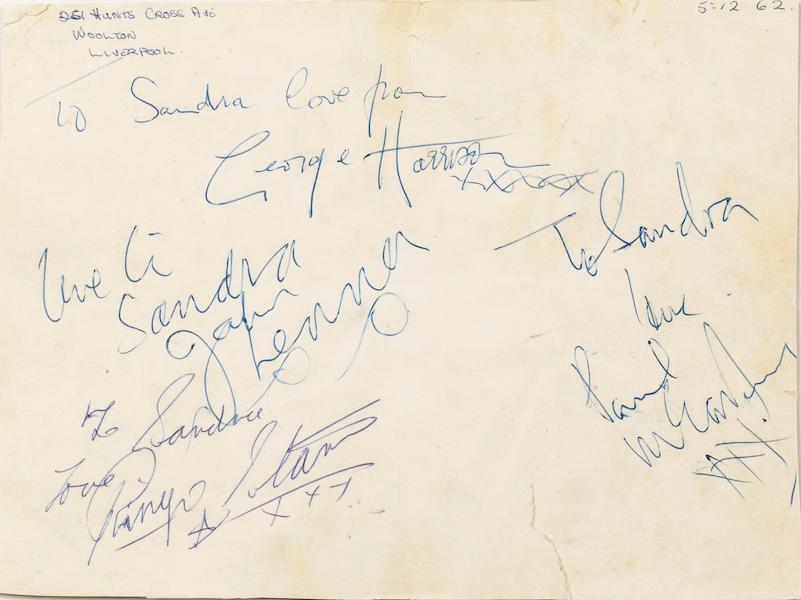 251 HUNTS CROSS AVE
WOOLTON
LIVERPOOL.
5.12.62.
To Sandra love from
George Harrison
xxxxxx
To Sandra
love
Paul
McCartney
XXX
love to
Sandra
John
Lennon
To Sandra
love
Ringo Starr
xxx